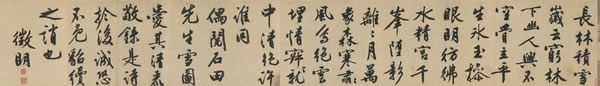 長林積雪
歲云窮林
下幽人興不
空立平
生冰玉
眼明彷彿
水精宮千
峯墮影
離離月萬
象森寒肅
風鳥絕雲
埋情
中清絕許
誰同
偶閱石田
先生雪圖
愛其清
敬錄是詩
於後誠恐
不免貂續
之誚也
徵明